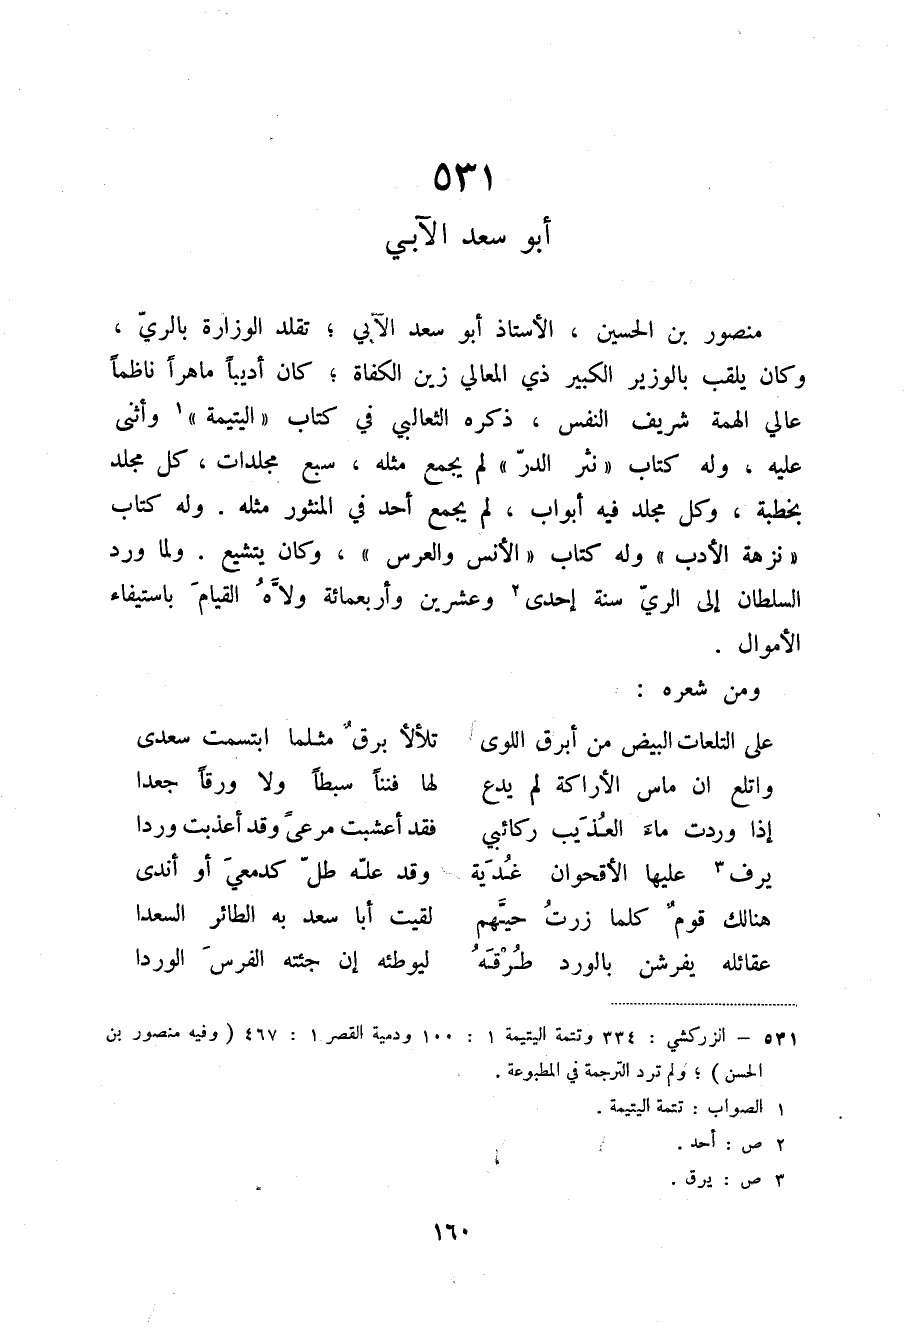 ٥٣١
أبو سعد الآبي
منصور بن الحسين ، الأستاذ أبو سعد الآبي ؛ تقلد الوزارة بالريّ ،
وكان يلقب بالوزير الكبير ذي المعالي زين الكفاة ؛ كان أديباً ماهراً ناظماً
عالي الهمة شريف النفس ، ذكره الثعالبي في كتاب « اليتيمة »١ وأثنى
عليه ، وله كتاب « نثر الدرّ » لم يجمع مثله ، سبع مجلدات ، كل مجلد
بخطبة ، وكل مجلد فيه أبواب ، لم يجمع أحد في المنثور مثله . وله كتاب
« نزهة الأدب » وله كتاب « الأنس والعرس » ، وكان يتشيع . ولما ورد
السلطان إلى الريّ سنة إحدى٢ وعشرين وأربعمائة ولاَّهُ القيامَ باستيفاء
الأموال .
ومن شعره :
على التلعات البيض من أبرق اللوى تلألأ برقٌ مثلما ابتسمت سعدى
واتلع ان ماس الأراكة لم يدع لها فنناً سبطاً ولا ورقاً جعدا
إذا وردت ماءَ العُذَيب ركائبي فقد أعشبت مرعىً وقد أعذبت وردا
يرف٣ عليها الأقحوان غُدَية وقد علّه طلّ كدمعيَ أو أندى
هنالك قومٌ كلما زرتُ حيَّهم لقيت أبا سعد به الطائر السعدا
عقائله يفرشن بالورد طُرْقَهُ ليوطئه إن جئته الفرسَ الوردا
٥٣١ – الزركشي : ٣٣٤ وتتمة اليتيمة ١ : ١٠٠ ودمية القصر ١ : ٤٦٧ ( وفيه منصور بن
الحسن ) ؛ ولم ترد الترجمة في المطبوعة .
١ الصواب : تتمة اليتيمة .
٢ ص : أحد .
٣ ص : يرق .
١٦٠